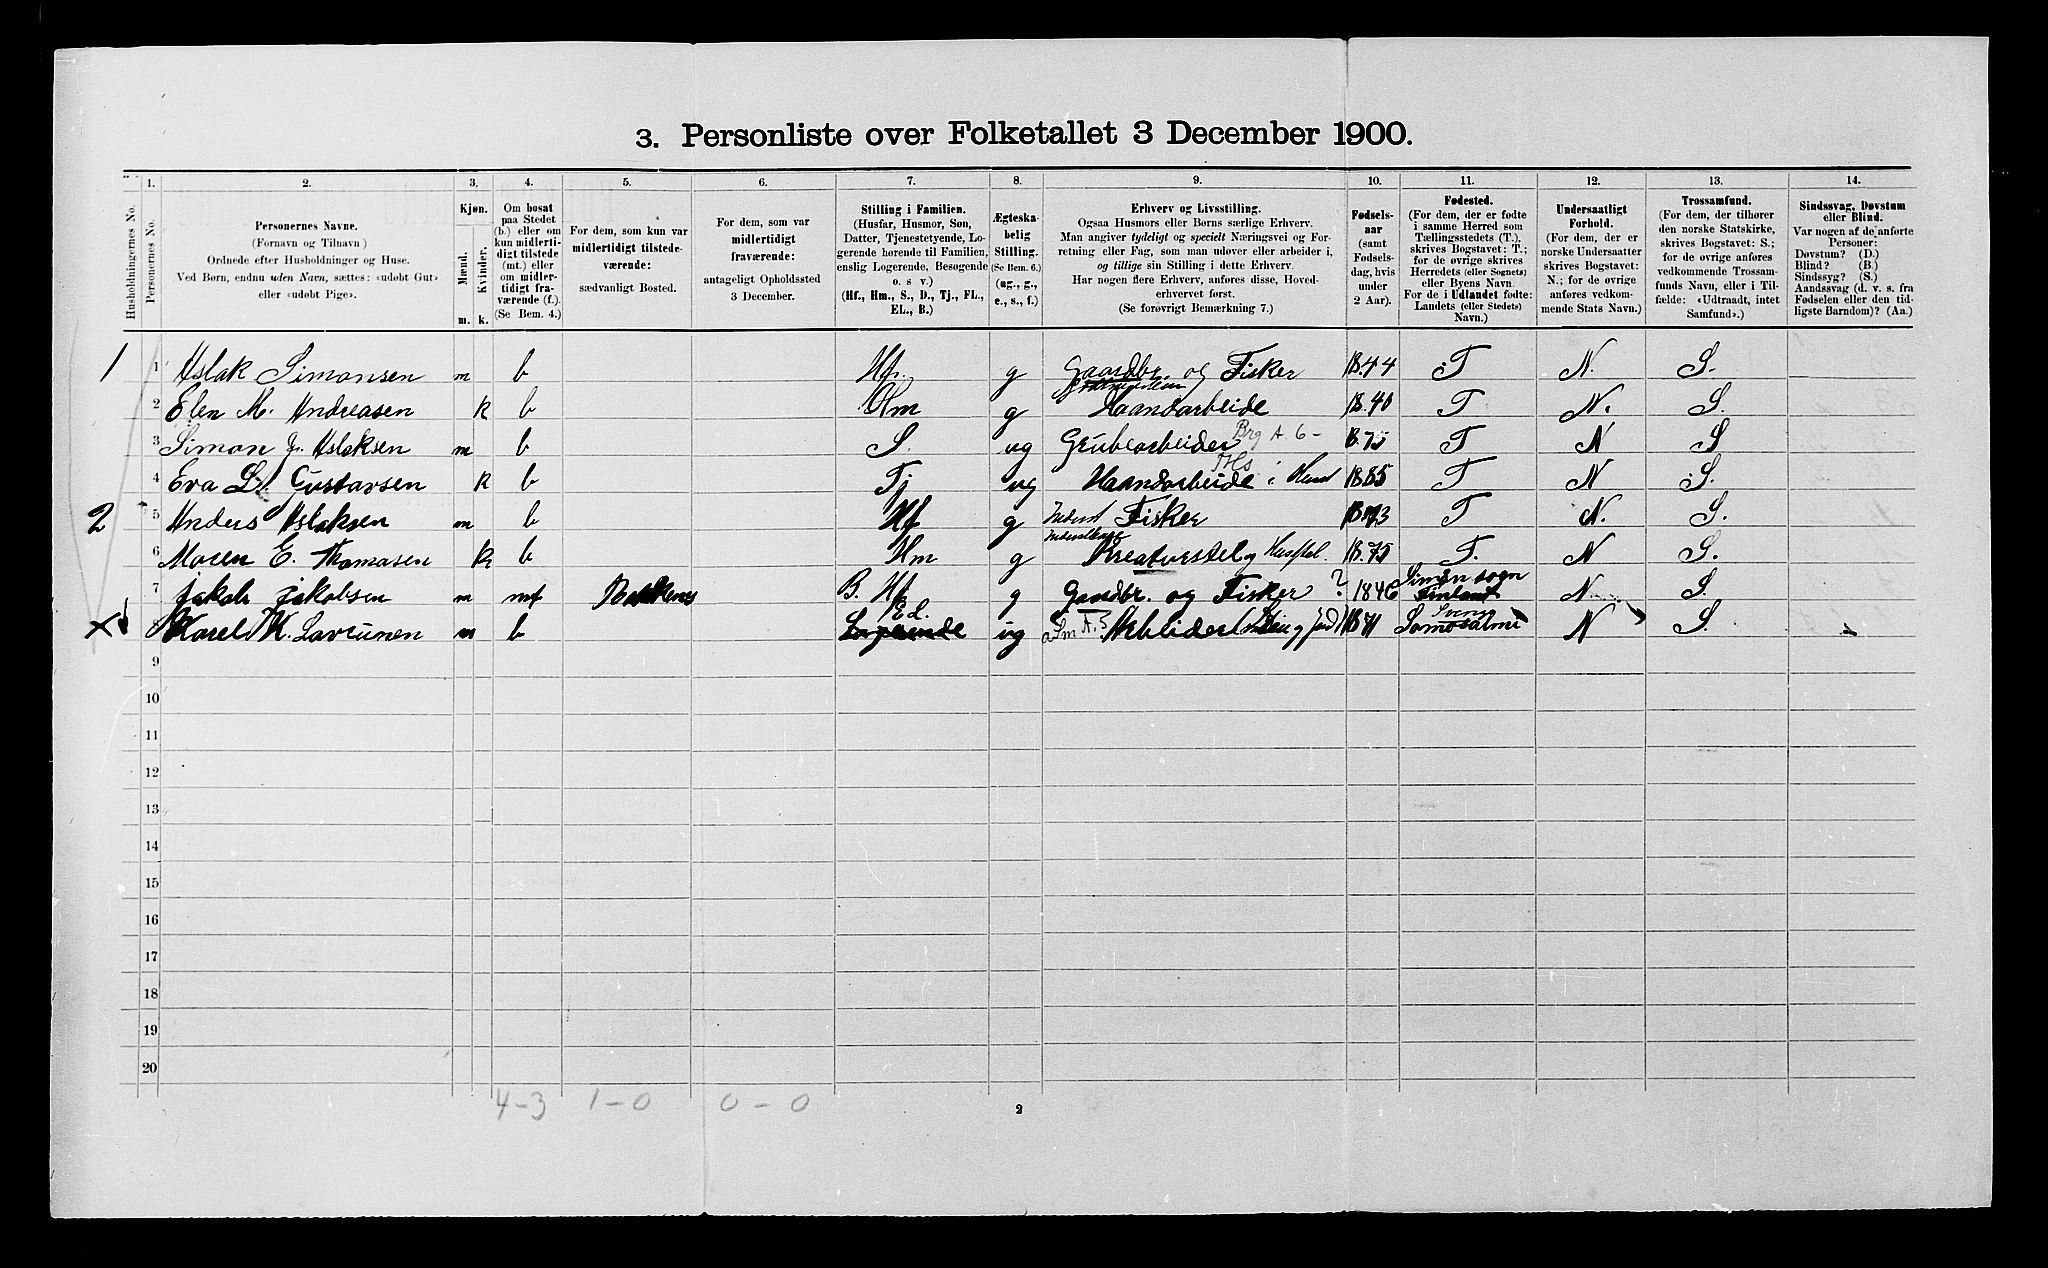 3. Personliste over Folketallet 3 December 1900.
Husholdningernes No.
1.
Personernes No.
2.
Personernes Navne.
(Fornavn og Tilnavn)
Ordnede efter Husholdninger og Huse.
Ved Børn, endnu uden Navn, sættes: «udøbt Gut»
eller «udøbt Pige».
3.
Kjøn.
Mænd.
Kvinder.
m. k.
4.
Om bosat
paa Stedet
(b.) eller om
kun midlerti-
digt tilstede
(mt.) eller
om midler-
tidigt fra-
værende (f.)
(Se Bem. 4.)
5.
For dem, som kun var
midlertidigt tilstede-
værende:
sædvanligt Bosted.
6.
For dem, som var
midlertidigt
fraværende:
antageligt Opholdssted
3 December.
7.
Stilling i Familien.
(Husfar, Husmor, Søn,
Datter, Tjenestetyende, Lo-
gerende hørende til Familien,
enslig Logerende, Besøgende
o. s v.)
(Hf., Hm., S., D., Tj., FL.,
EL., B.)
8.
Ægteska-
belig
Stilling.
(Se Bem. 6.)
(ug., g.,
e., s., f.)
9.
Erhverv og Livsstilling.
Ogsaa Husmors eller Børns særlige Erhverv.
Man angiver tydeligt og specielt Næringsvei og For-
retning eller Fag, som man udøver eller arbeider i,
og tillige sin Stilling i dette Erhverv.
Har nogen flere Erhverv, anføres disse, Hoved-
erhvervet først.
(Se forøvrigt Bemærkning 7.)
10.
Fødsels-
aar
(samt
Fødsels-
dag, hvis
under
2 Aar).
11.
Fødested.
(For dem, der er fødte
i samme Herred som
Tællingsstedets (T.),
skrives Bogstavet: T.;
for de øvrige skrives
Herredets (eller Sognets)
eller Byens Navn.
For de i Udlandet fødte:
Landets (eller Stedets)
Navn.)
12.
Undersaatligt
Forhold.
(For dem, der er
norske Undersaatter
skrives Bogstavet:
N.; for de øvrige
anføres vedkom-
mende Stats Navn.)
13.
Trossamfund.
(For dem, der tilhører
den norske Statskirke,
skrives Bogstavet: S.;
for de øvrige anføres
vedkommende Trossam-
funds Navn, eller i Til-
fælde: «Udtraadt, intet
Samfund».)
14.
Sindssvag, Døvstum
eller Blind.
Var nogen af de anførte
Personer:
Døvstum? (D.)
Blind? (B.)
Sindssyg? (S.)
Aandssvag (d. v. s. fra
Fødselen eller den tid-
ligste Barndom)? (Aa.)
1 1 Aslak Simonsen m b Hf. g Gaardbr. og Fisker 18.44 T N. S.
2 Elen M. Andreasen k b Hm g Haandarbeide 18.40 T N. S.
3 Simon J. Aslaksen m b S. ug Grubearbeider Brg A. 6- 18.75 T N S
4 Eva L. Gustavsen k b Tj ug Haandarbeide i Huset 18.85 T N S.
2 5 Anders Aslaksen m b Hf g Fisker 18.73 T N. S.
6 Maren E. Thomasen k b Hm g Kreaturstel og 18.75 T. N S.
7 Jakob Jakobsen m mt B. Hf g Gaardbr. og Fisker ? 1846 Finland N. S.
8 Karel K. b E.L. Logerende ug Arbeider 18.71 N S.
9
10
11
12
13
14
15
16
17
18
19
20
4-3 1-0 0-0
2